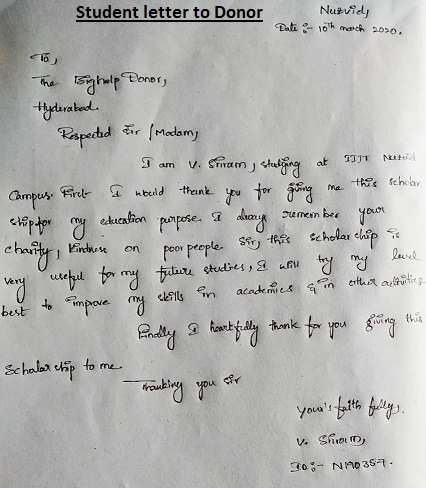 Student letter to Donor
Nuzvid,
Date :- 10th march 2020.
To,
The Bighelp Donor,
Hyderabad.
Respected Sir / Madam,
I am V. Sriram, studying at IIIT Nuzvid
Campus. First I would thank you for giving me this scholar
ship for my education purpose. I always remember your
charity, kindness on poor people Sir, this Scholar ship is
very useful for my future studies, I will try my level
best to improve my skills in academics & in other activities.
Finally I heartfully thank for you giving this
Scholar ship to me.
Thanking you sir
Your's faith fully,
V. Sriram,
ID:- N190357.